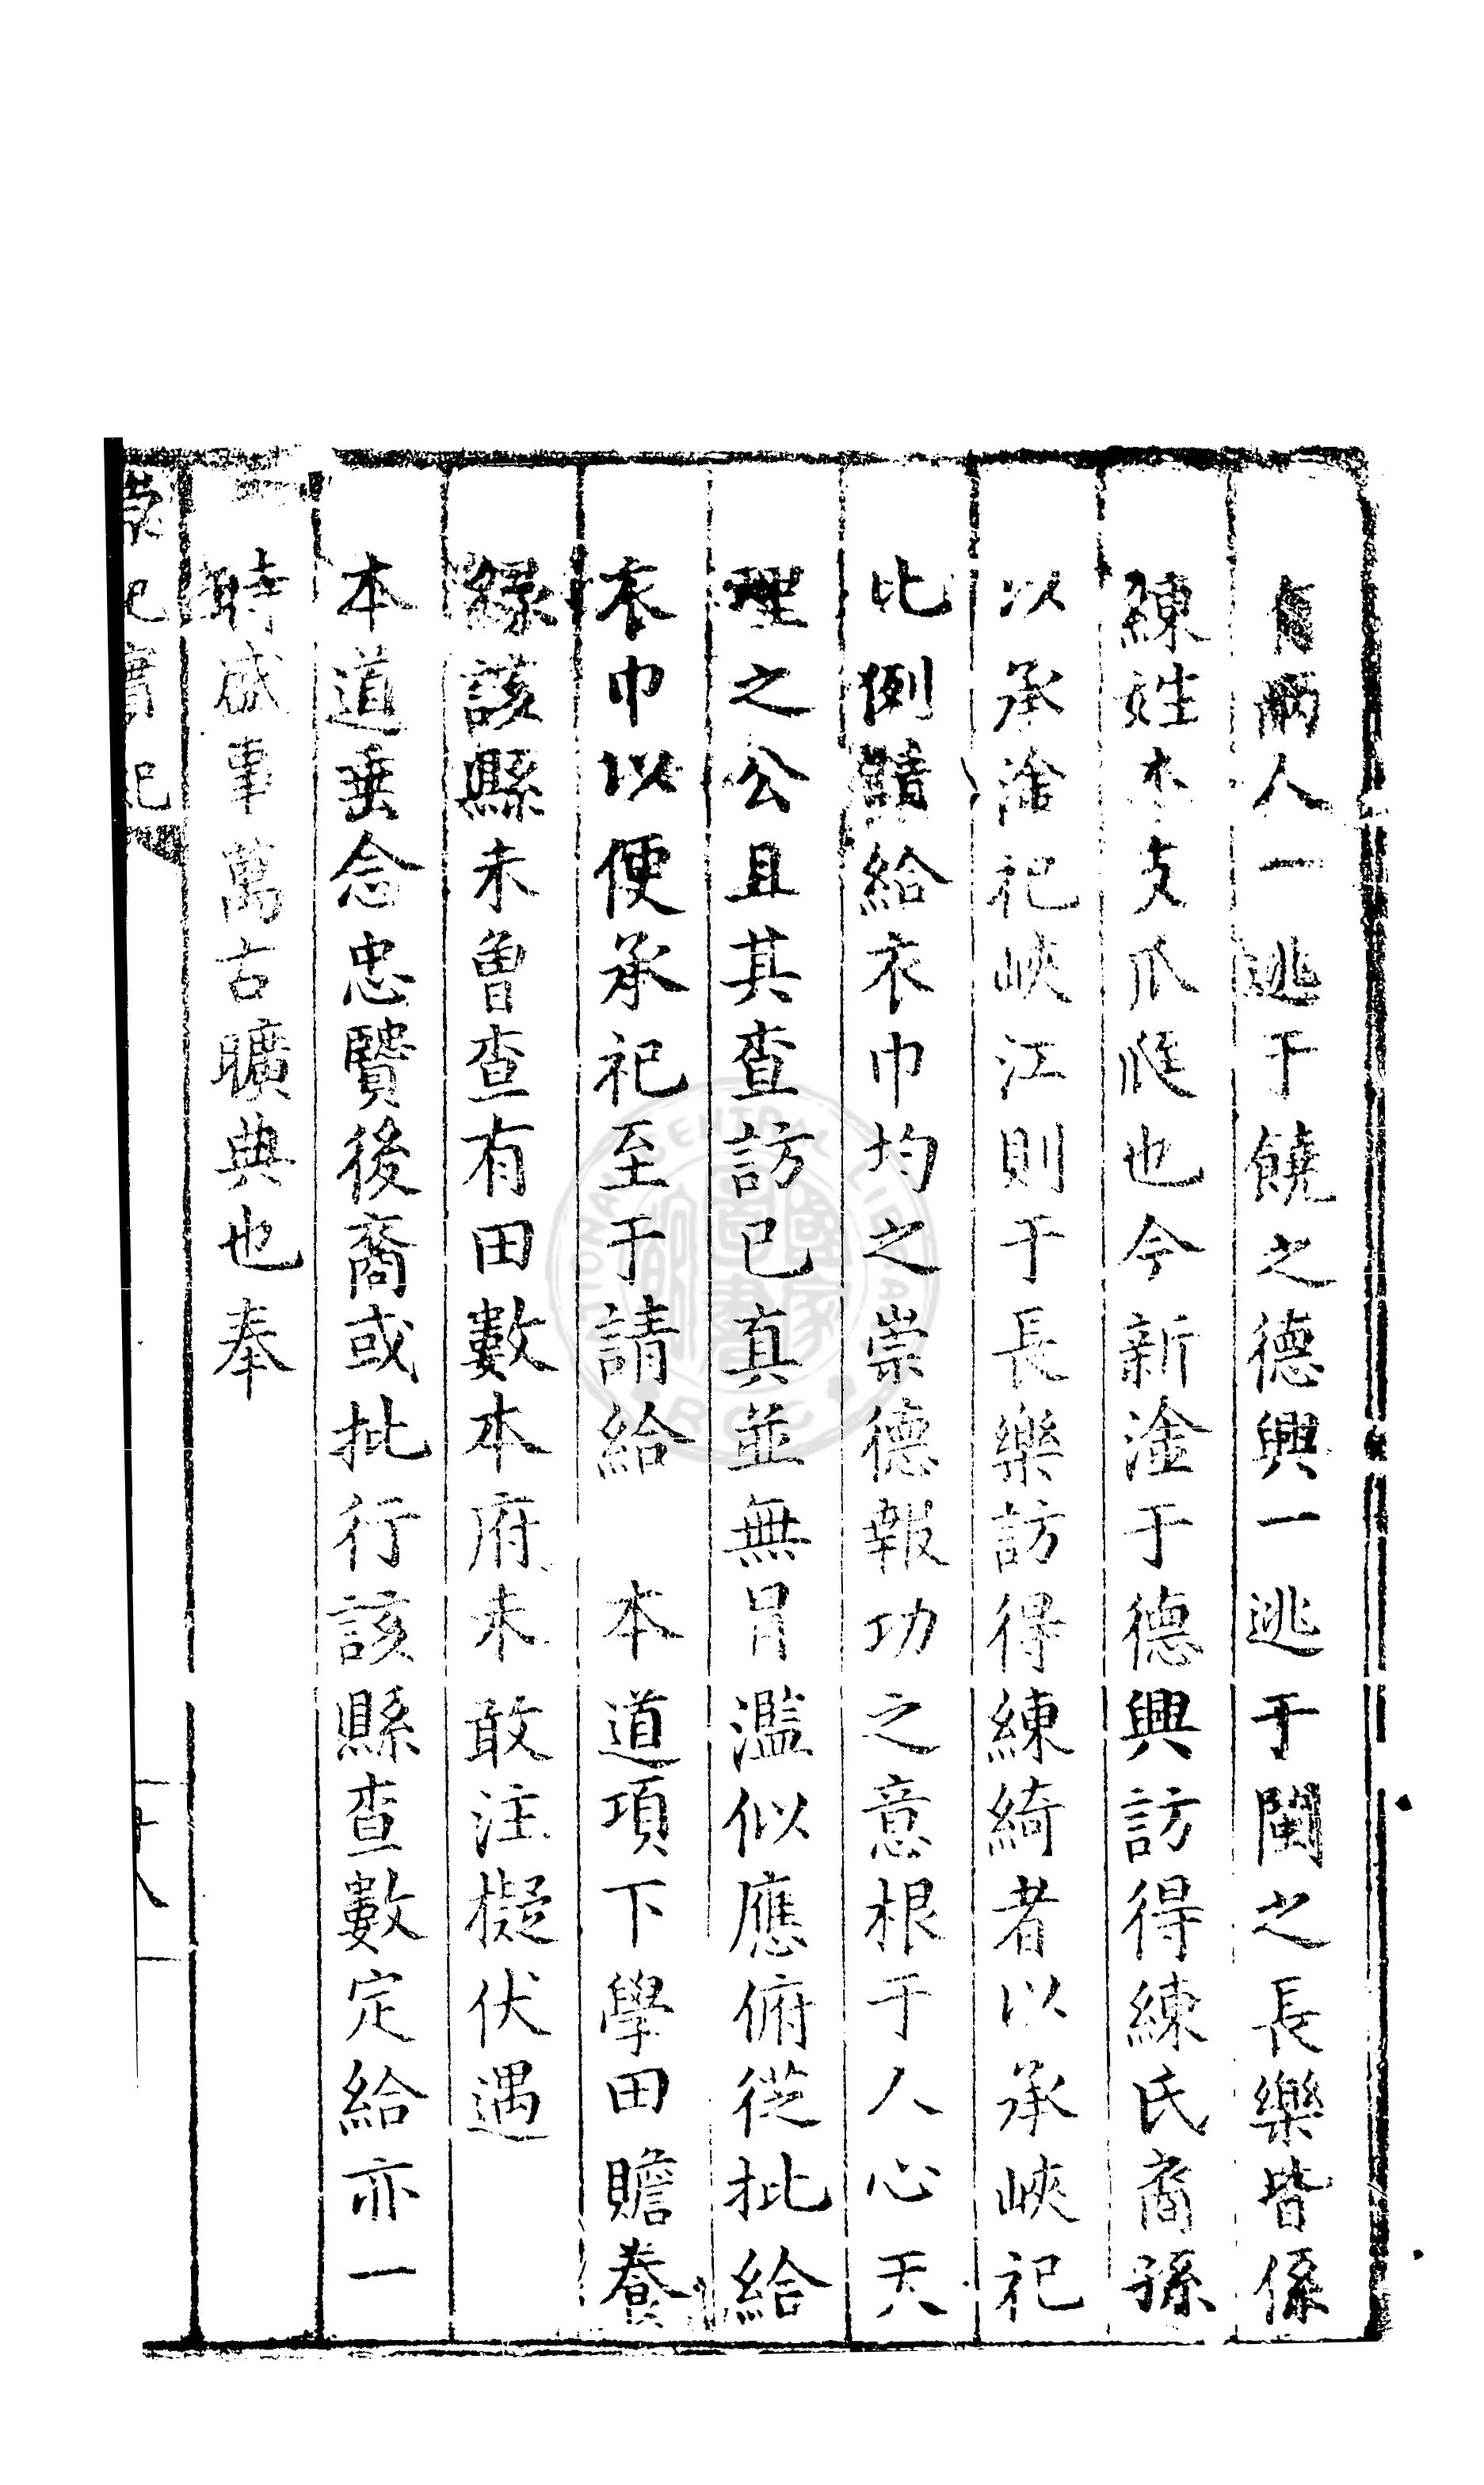 有兩人一逃于饒之德興一逃于閩之長樂皆係
練姓本支爪瓞也今新淦于德興訪得練氏裔孫
以承淦祀峽江則于長樂訪得練綺者以承峽祀
比例請給衣巾均之崇德報功之意根于人心天
理之公且其查訪已真並無冐濫似應俯從批給
衣巾以便承祀至于請給　本道項下學田贍養
緣該縣未曾查有田數本府未敢注擬伏遇
本道垂念忠賢後裔或批行該縣查數定給亦一
時盛事萬古曠典也奉
崇祀實紀
十八